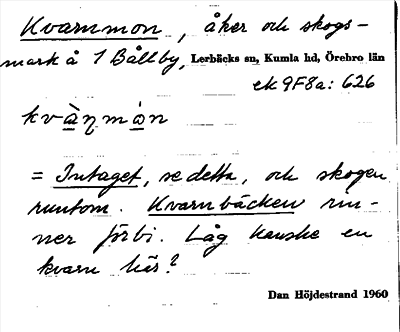 Kvarnmon, åker och skogs-
mark å 1 Bållby, Lerbäcks sn, Kumla hd, Örebro län
ek 9F8a: 626
kvàηmán
= Intaget, se detta, och skogen
runtom. Kvarnbäcken rin-
ner förbi. Låg kanske en
kvarn här?
Dan Höjdestrand 1960